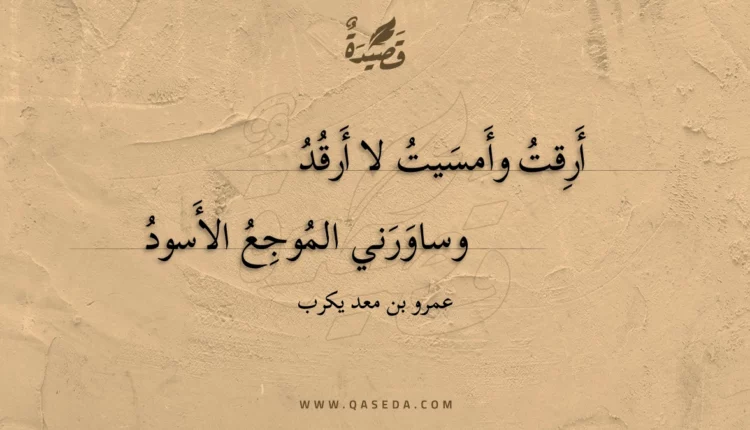 قَصِيْدَةٌ
أَرِقتُ وأَمسَيتُ لا أَرقُدُ
وساوَرَني المُوجِعُ الأَسودُ
عمرو بن معد يكرب
WWW.QASEDA.COM